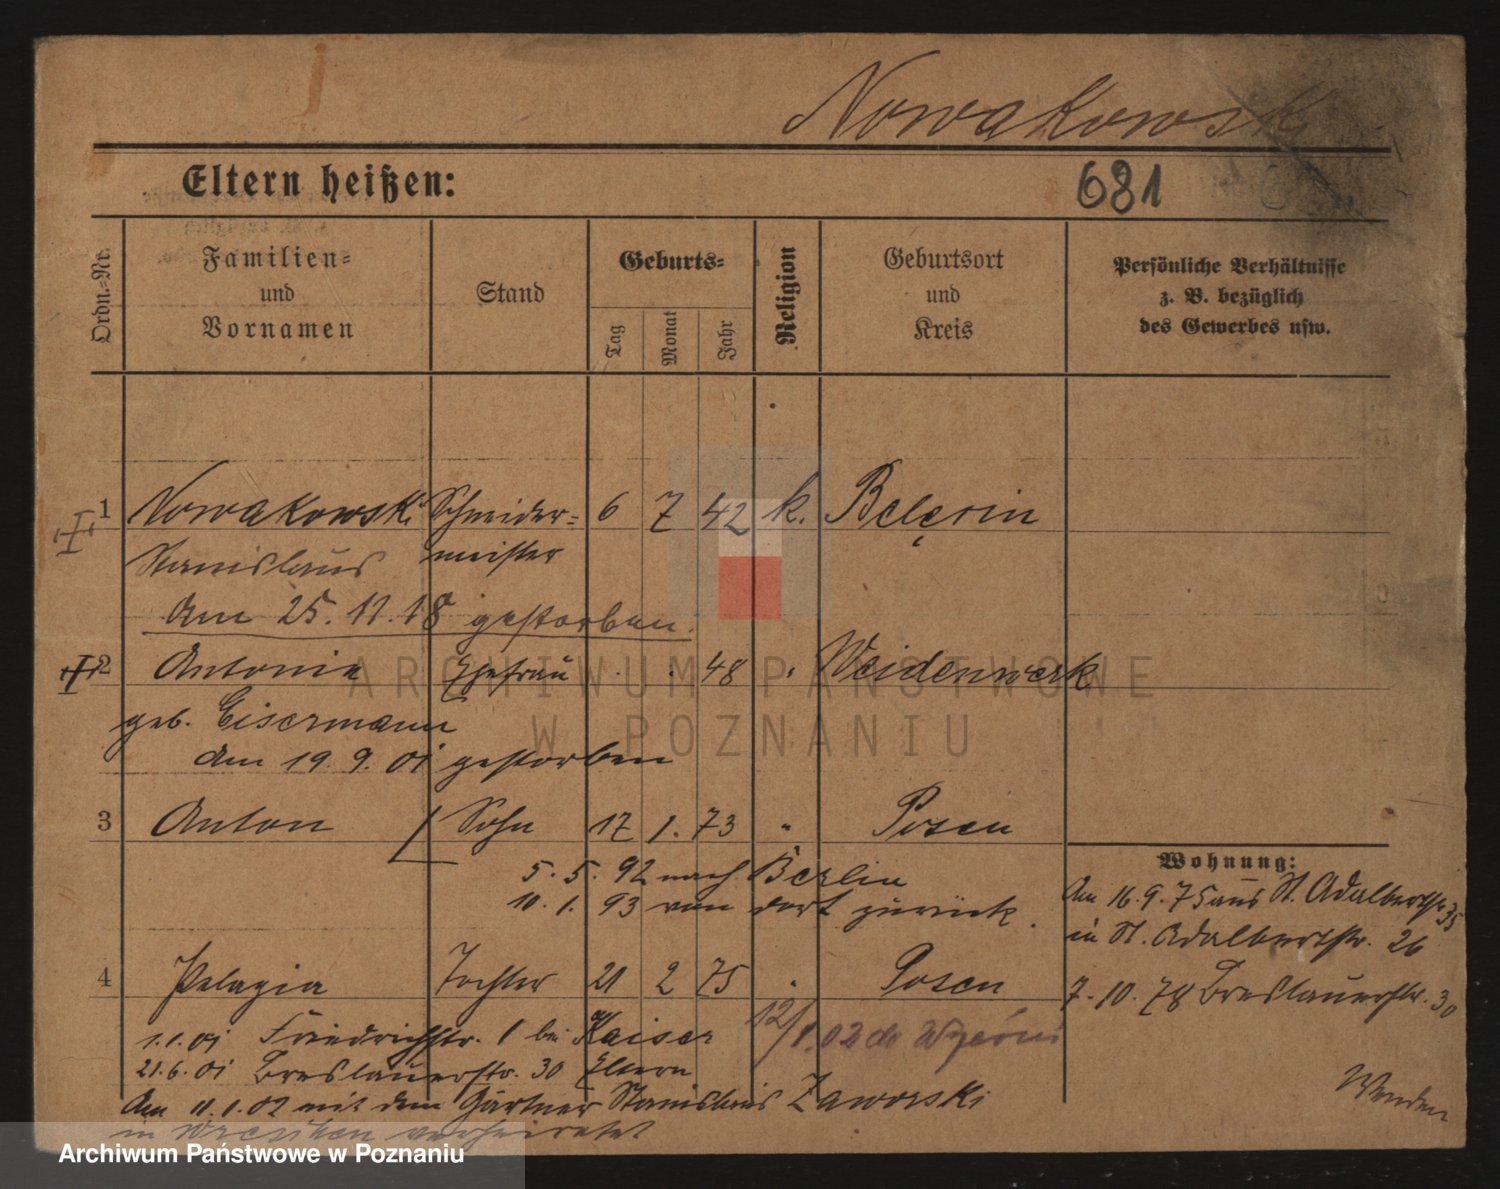 Nowakowski
Eltern heißen:
681
Ordn.-Nr.
Familien-
und
Vornamen
Stand
Geburts-
Tag
Monat
Jahr
Religion
Geburtsort
und
Kreis
Persönliche Verhältnisse
z. B. bezüglich
des Gewerbes usw.
1 Nowakowski Schneider- 6 7 42 k. Belęcin
Stanislaus meister
Am 25.11.18 gestorben.
2 Antonie Ehefrau . . 48 " Weidenwerk
geb. Eisermann
Am 19.9.01 gestorben
3 Anton Sohn 17 1. 73 " Posen
5.5.92 nach Berlin
10.1.93 von dort zurück.
Wohnung:
Am 16.9.75 aus St. Adalbertstr 35
in St. Adalbertstr. 26
4 Pelagia Tochter 21 2 75 " Posen
7.10.78 Breslauerstr. 30
1.1.01 Friedrichstr. 1 bei Kaiser
12/1.02 do
21.6.01 Breslauerstr. 30 Eltern
Am 11.1.02 mit dem Gärtner Stanislaus Zaworski
in Wreschen verheiratet
Wenden
ARCHIWUM PAŃSTWOWE
W POZNANIU
Archiwum Państwowe w Poznaniu